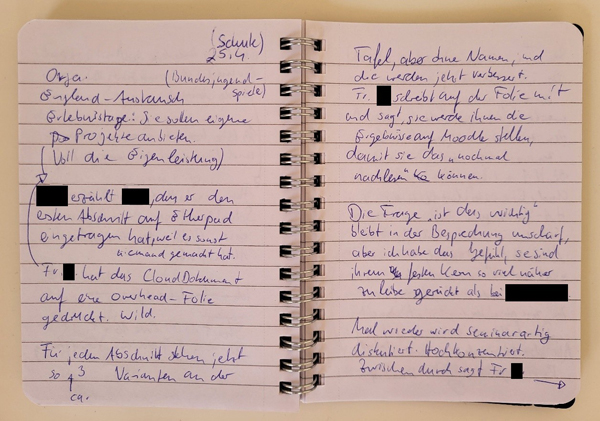 (Schule)
25.4.
Orga. (Bundesjugend-
spiele)
England-Austausch
Erlebnistage: sie sollen eigene
Projekte anbieten.
(Voll die Eigenleistung)
erzählt, den er den
ersten Abschnitt auf Etherpad
eingetragen hat, weil es sonst
niemand gemacht hat.
Fr. hat das CloudDokument
auf eine Overhead-Folie
gedruckt. Wild.
Für jeden Abschnitt stehen jetzt
so 3 Varianten an der
ca.
Tafel, aber ohne Namen, und
die werden jetzt verbessert.
Fr. schreibt auf der Folie mit
und sagt, sie werde ihnen die
Ergebnisse auf Moodle stellen,
damit sie das "nochmal
nachlesen" können.
Die Frage "ist das wichtig"
bleibt in der Besprechung unscharf,
aber ich habe das Gefühl, sie sind
ihrem festen Kern so viel näher
zu Leibe gerückt als bei
Mal wieder wird seminarartig
diskutiert. Hochkonzentriert.
Zwischendurch sagt Fr.